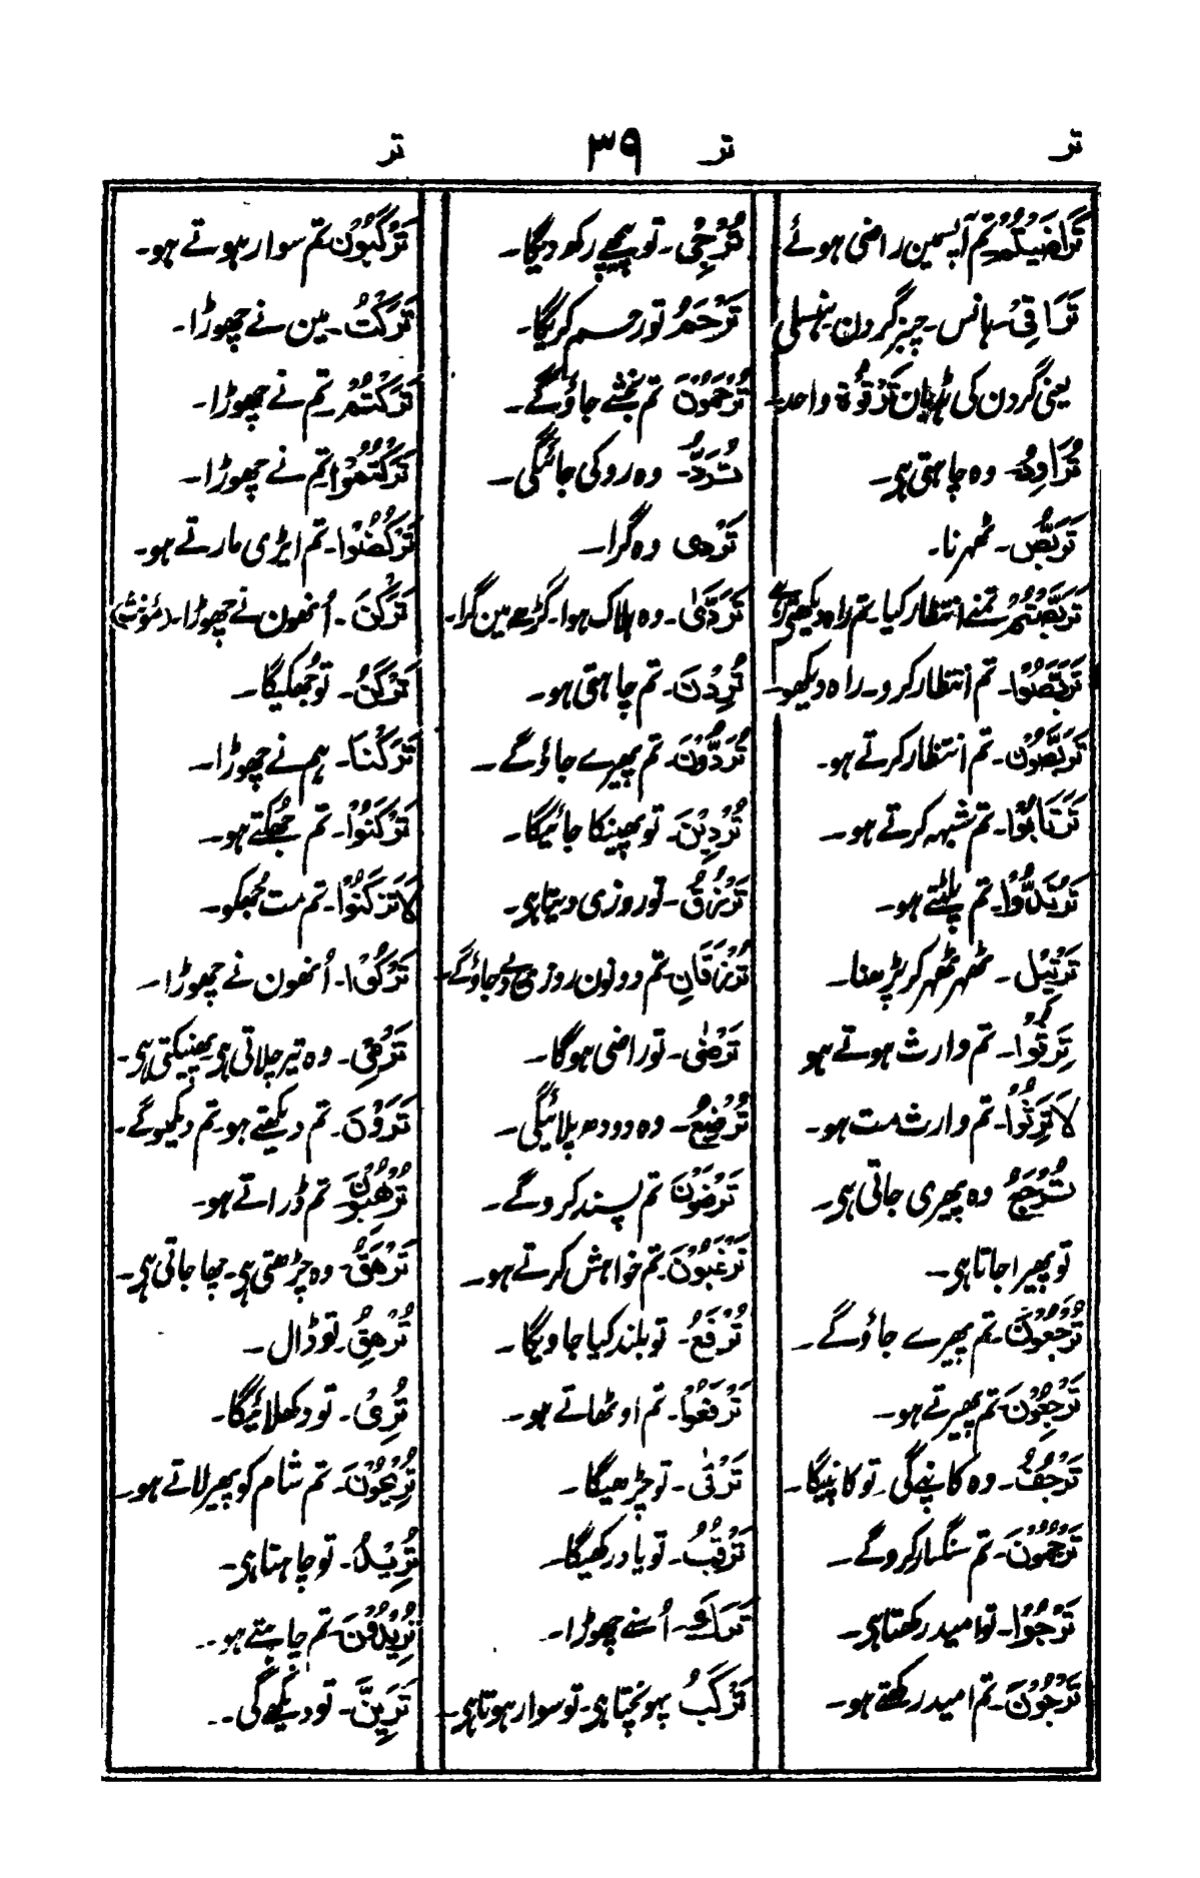 تر
تر
۳۹
تر
تَرَاضَيْتُمْ تم آپسمین راضی ہوئے
تَرَاقِيَ۔ ہانس۔ چنبر گردن ہنسلی
یعنی گردن کی ہڈیان تَرْقُوَة واحد۔
تُرَاوِدُ۔ وہ چاہتی ہی۔
تَرَبُّصُ۔ ٹھہرنا۔
تَرَبَّصْتُمْ تمنے انتظار کیا۔ تم راہ دیکھتے رہے
تَرَبَّصُوْا۔ تم انتظار کرو۔ راہ دیکھو۔
تَرَبَّصُوْنَ۔ تم انتظار کرتے ہو۔
تَرْتَابُوْا۔ تم شبہہ کرتے ہو۔
تَرْتَدُّوْا۔ تم پلٹتے ہو۔
تَرْتِيْل۔ ٹھہر ٹھہر کر پڑھنا۔
تَرِثُوْا۔ تم وارث ہوتے ہو
لَا تَرِثُوْا۔ تم وارث مت ہو۔
تُرْجَعُ وہ پھیری جاتی ہی۔
تو پھیرا جاتا ہی۔
تُرْجَعُوْنَ۔ تم پھیرے جاؤگے۔
تَرْجِعُوْنَ تم پھیرتے ہو۔
تَرْجُفُ۔ وہ کانپے گی۔ تو کانپیگا۔
تَرْجُمُوْنَ۔ تم سنگسار کروگے۔
تَرْجُوْا۔ تو امید رکھتا ہی۔
تَرْجُوْنَ۔ تم امید رکھتے ہو۔
تُرْجِیْ۔ تو پیچھے رکھ دیگا۔
تَرْحَمْ تو رحم کریگا۔
تُرْحَمُوْنَ تم بخشے جاؤگے۔
تُرَدُّ۔ وہ رد کی جائیگی۔
تَرْدٰی وہ گرا۔
تَرَدّٰی۔ وہ ہلاک ہوا۔ گڑھے مین گرا۔
تُرِدْنَ۔ تم چاہتی ہو۔
تُرَدُّوْنَ۔ تم پھیرے جاؤگے۔
تُرْدِيْنَ۔ تو پھینکا جائیگا۔
تَرْزُقُ۔ تو روزی دیتا ہی۔
تُرْزَقَانِ تم دونون روزی دیے جاؤگے۔
تَرْضٰی۔ تو راضی ہوگا۔
تُرْضِعُ۔ وہ دودھ پلائیگی۔
تَرْضَوْنَ تم پسند کروگے۔
تَرْغَبُوْنَ۔ تم خواہش کرتے ہو۔
تُرْفَعُ۔ تو بلند کیا جاویگا۔
تَرْفَعُوْا۔ تم اوٹھاتے ہو۔
تَرْقٰی۔ تو چڑھیگا۔
تَرْقُبْ۔ تو یاد رکھیگا۔
تَرَكَ۔ اُسنے چھوڑا۔
تَرْكَبُ پہونچتا ہی۔ تو سوار ہوتا ہی۔
تَرْكَبُوْنَ تم سوار ہوتے ہو۔
تَرَكْتُ۔ مین نے چھوڑا۔
تَرَكْتُمْ۔ تم نے چھوڑا۔
تَرَكْتُمُوْا تم نے چھوڑا۔
تَرْكُضُوْا۔ تم ایڑی مارتے ہو۔
تَرَكْنَ۔ اُنھون نے چھوڑا۔ (مؤنث)
تَرْكَنُ۔ تو جھکیگا۔
تَرَكْنَا۔ ہم نے چھوڑا۔
تَرْكَنُوْا۔ تم جھکتے ہو۔
لَا تَرْكَنُوْا۔ تم مت جھکو۔
تَرَكُوْا۔ اُنھون نے چھوڑا۔
تَرْمِیْ۔ وہ تیر چلاتی ہی۔ پھینکتی ہی۔
تَرَوْنَ۔ تم دیکھتے ہو۔ تم دیکھوگے۔
تُرْهِبُوْنَ۔ تم ڈراتے ہو۔
تَرْهَقُ۔ وہ چڑھتی ہی۔ چھا جاتی ہی۔
تُرْهِقُ۔ تو ڈال۔
تُرِیْ۔ تو دکھلائیگا۔
تُرِيْحُوْنَ۔ تم شام کو پھیر لاتے ہو۔
تُرِيْدُ۔ تو چاہتا ہی۔
تُرِيْدُوْنَ۔ تم چاہتے ہو۔
تَرَيِنَّ۔ تو دیکھے گی۔